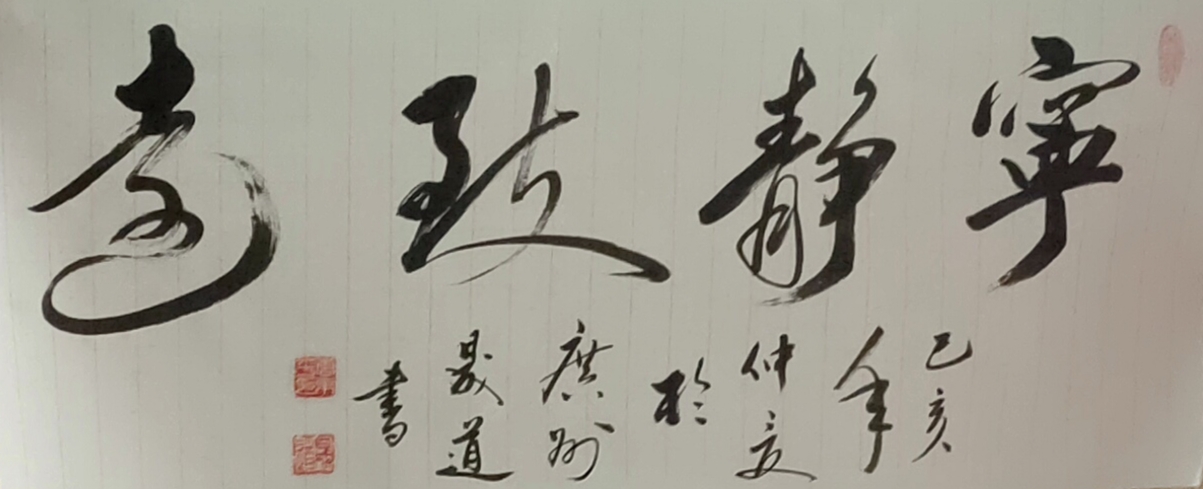 寧靜致遠
己亥
年
仲夏
於
廣州
晟道
書